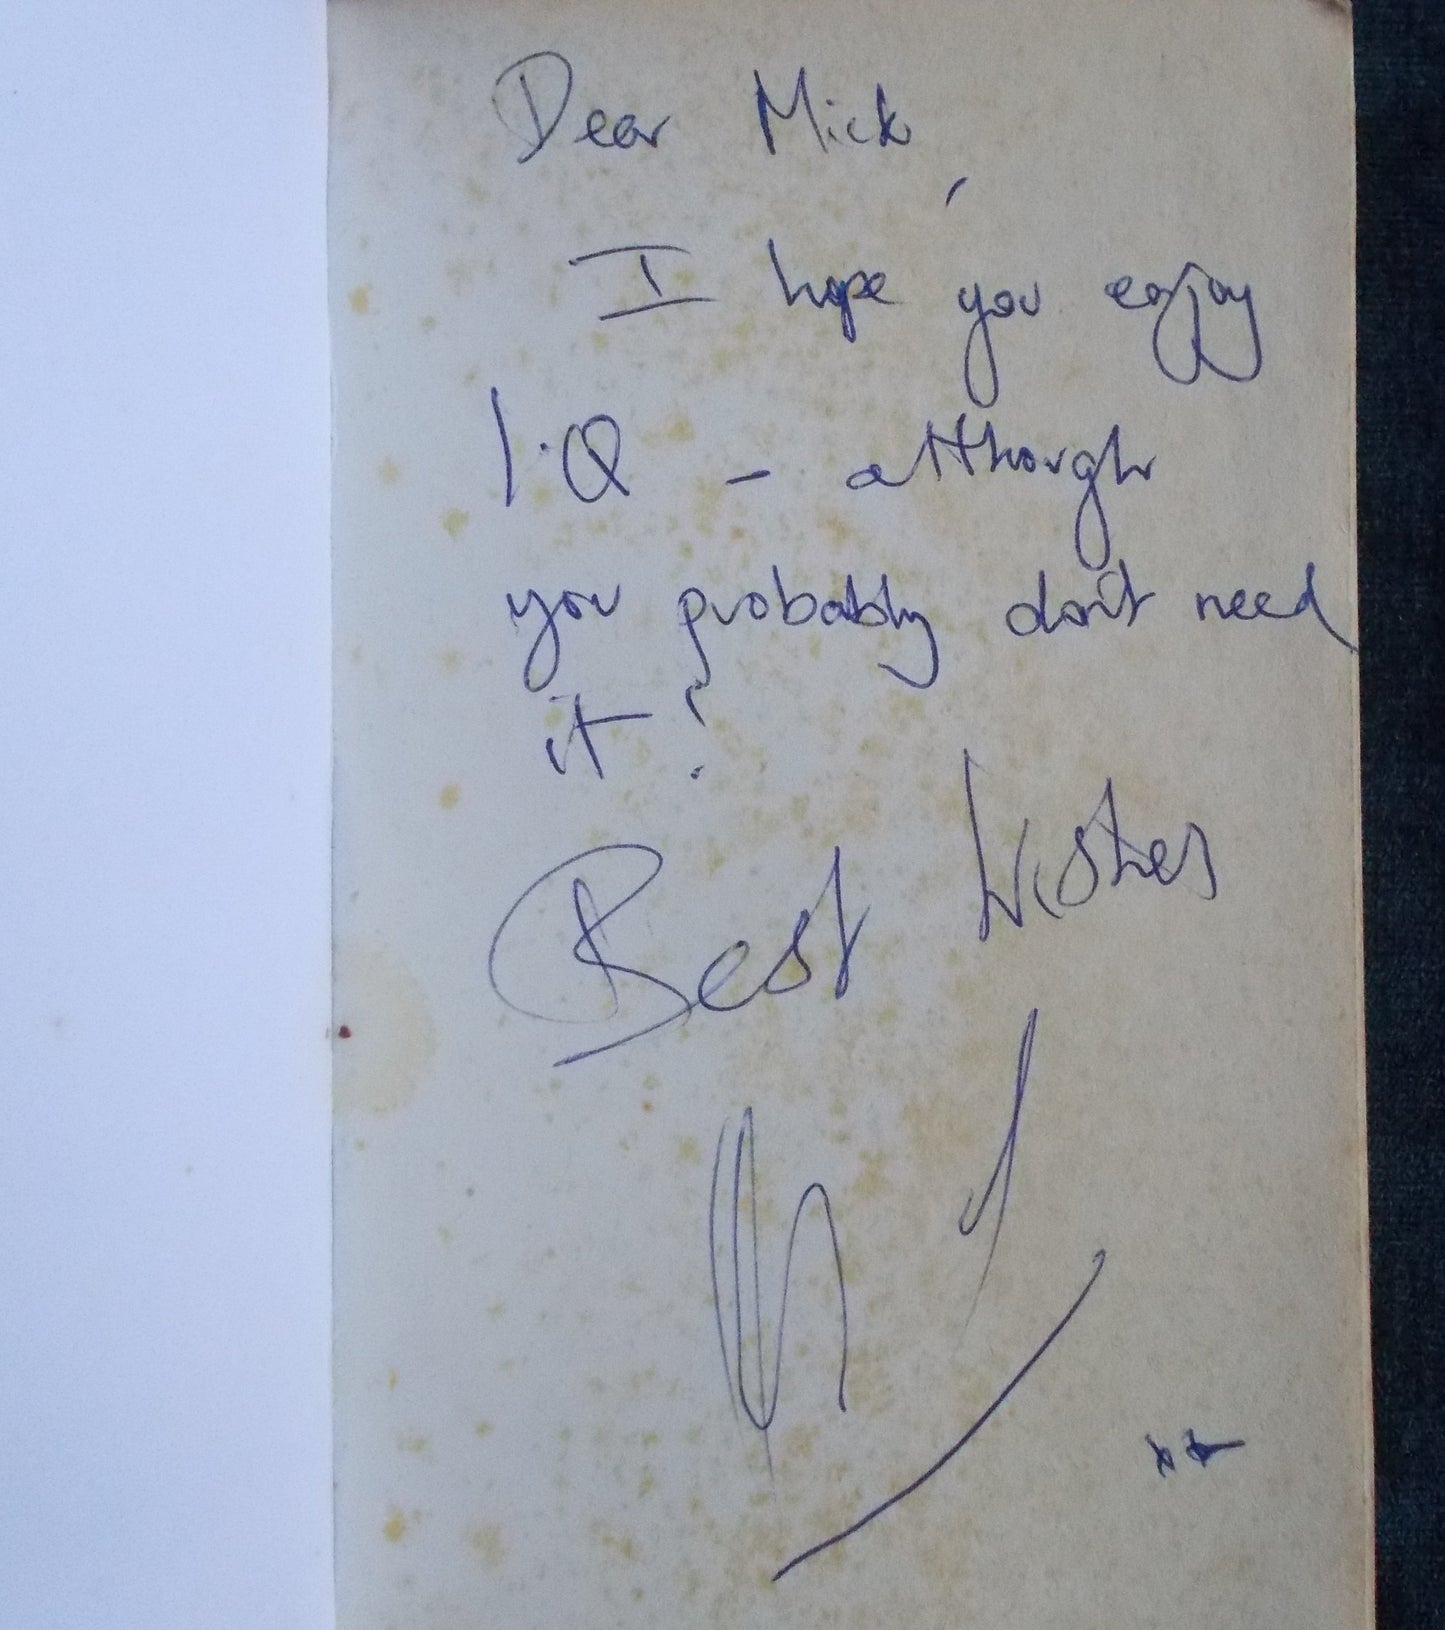 Dear Mick,
I hope you enjoy
I.Q - although
you probably don't need
it!
Best Wishes